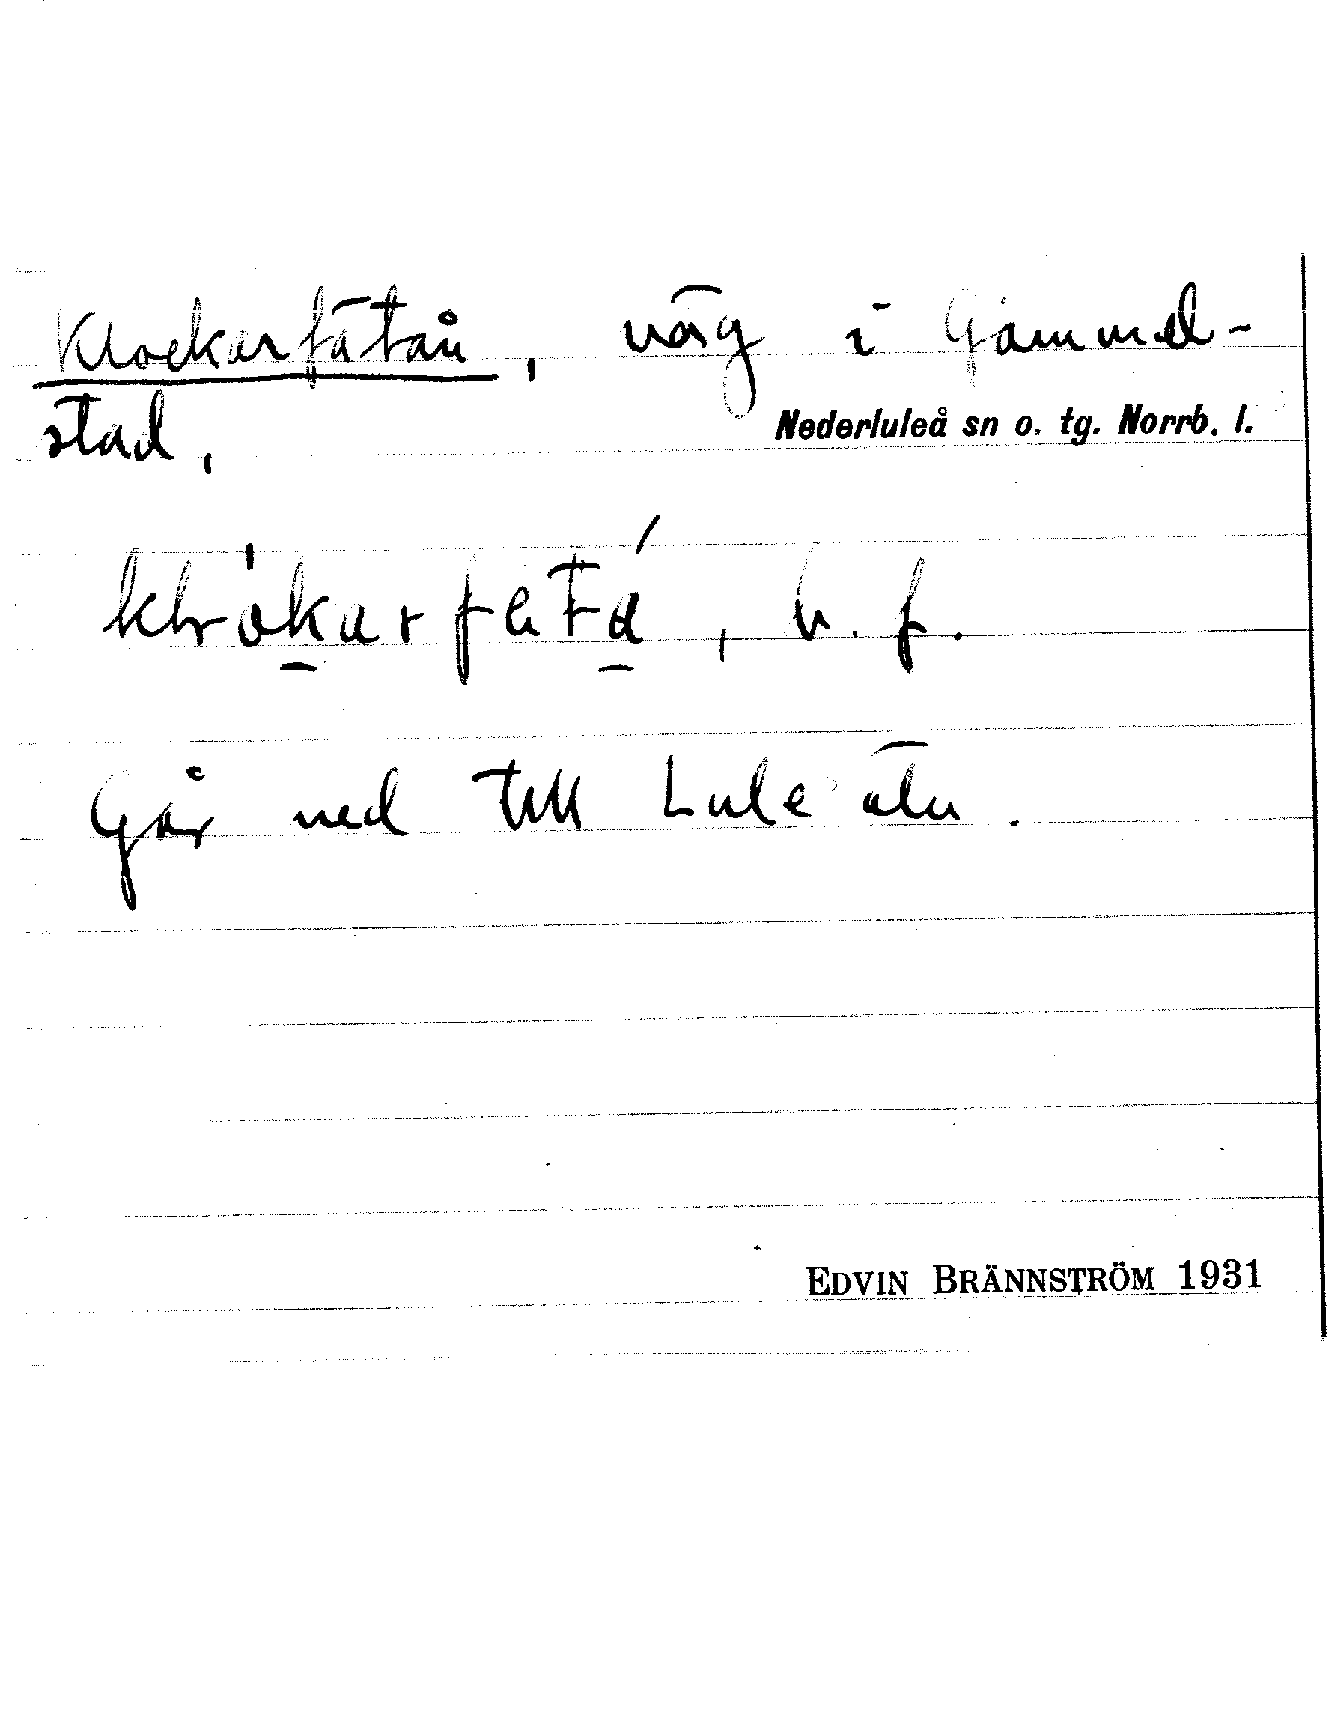 Klockarfätån, väg i Gammel-
stad,
Nederluleå sn o. tg. Norrb. l.
b. f.
Går ned till Lule älv.
EDVIN BRÄNNSTRÖM 1931